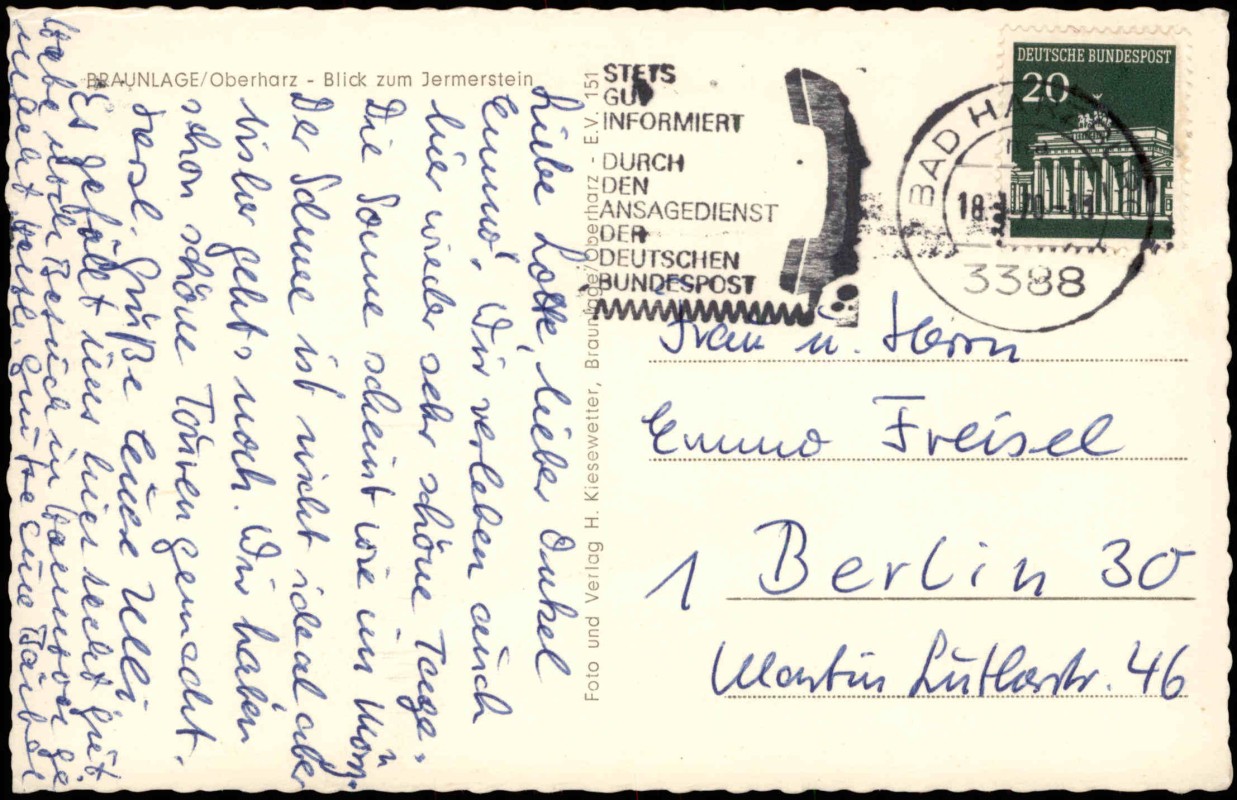 BRAUNLAGE/Oberharz - Blick zum Jermerstein
Liebe Lotte, lieber Onkel
Emmo, Wir verleben auch
hier wieder sehr schöne Tage.
Die Sonne scheint wie im März.
Der Schnee ist nicht ideal aber
bisher gehts noch. Wir haben
schon schöne Touren gemacht.
Herzl. Grüße Eure Ulli
Es gefällt uns hier recht gut
habe noch Besuch in
Foto und Verlag H. Kiesewetter, Braunlage/Oberharz - E.V. 151
STETS
GUT
INFORMIERT
DURCH
DEN
ANSAGEDIENST
DER
DEUTSCHEN
BUNDESPOST
DEUTSCHE BUNDESPOST
20
BAD HARZBURG
18. 70-18
3388
Frau u. Herrn
Emmo Freisel
1 Berlin 30
Martin Lutherstr. 46